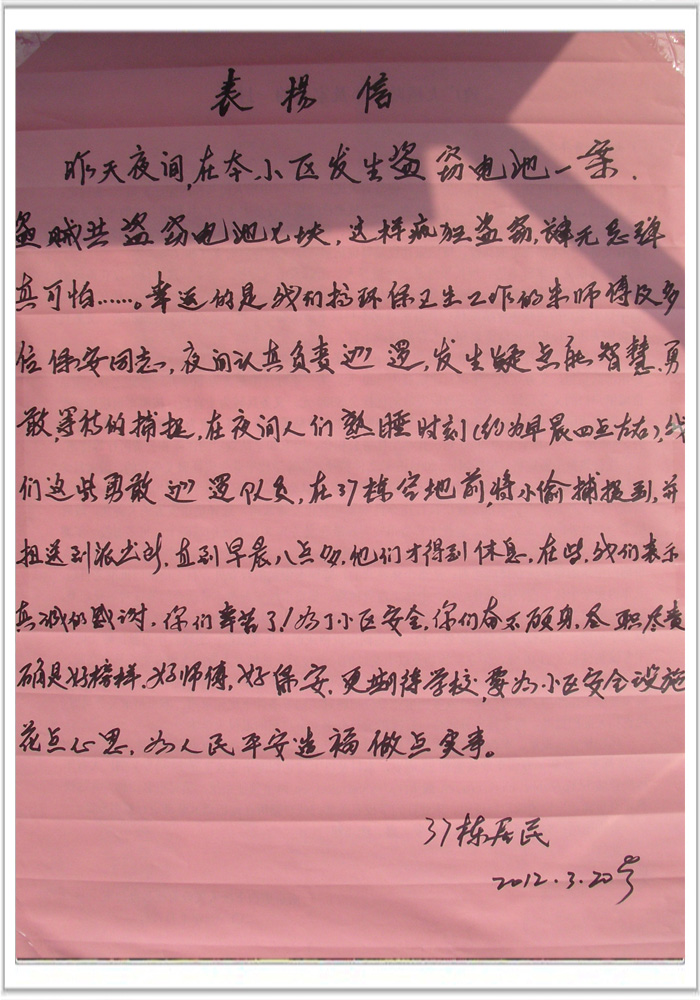 表扬信
昨天夜间,在本小区发生盗窃电池一案.
盗贼共盗窃电池九块,这样疯狂盗窃,肆无忌弹
真可怕……。幸运的是我们搞环保卫生工作的朱师傅及多
位保安同志,夜间认真负责巡逻,发生疑点能智慧、勇
敢,等待的捕捉,在夜间人们熟睡时刻(约为早晨四点左右),我
们这些勇敢巡逻队员,在37栋空地前,将小偷捕捉到,并
扭送到派出所.直到早晨八点多,他们才得到休息,在些,我们表示
真诚的感谢,你们辛苦了!为了小区安全,你们奋不顾身,尽职尽责
确是好榜样,好师傅,好保安.更期待学校,要为小区安全设施
花点心思,为人民平安造福做点实事。
37栋居民
2012.3.20号